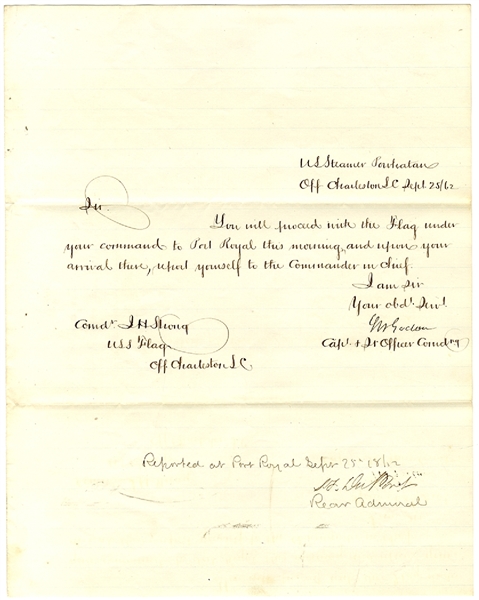 U.S. Steamer Powhatan
Off Charleston S.C Sept 25/62
Sir.
You will proceed with the Flag under
your command to Port Royal this morning, and upon your
arrival there, report yourself to the Commander in chief.
I am sir
Your obdt Servt.
Comdr J H Strong
U.S.S Flag
Off Charleston S.C
S W Godon
Capt & Sr Officer Comdng
Reported at Port Royal Sept 25th 1862
S. F. Du Pont
Rear Admiral